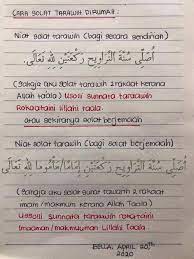 CARA SOLAT TARAWIH DIRUMAH...
Niat solat tarawih (bagi secara sendirian)
أُصَلِّى سُنَّةَ التَّرَاوِيْحِ رَكْعَتَيْنِ لِلّٰهِ تَعَالَى.
(Sahaja aku solat tarawih 2 rakaat kerana
Allah taala) Usolli sunnata tarawih
Rokaataini lillahi taala.
atau sekiranya solat berjemaah
Niat solat tarawih (bagi solat berjemaah)
أُصَلِّى سُنَّةَ التَّرَاوِيْحِ رَكْعَتَيْنِ إِمَامًا/مَأْمُومًا لِلّٰهِ تَعَالَى
(Sahaja aku solat sunat tarawih 2 rakaat
imam / makmum kerana Allah Taala)
Ussolli sunnata tarawih rokataini
Imaaman/makmuuman lillahi Taala
BELLA, APRIL 20th
2020